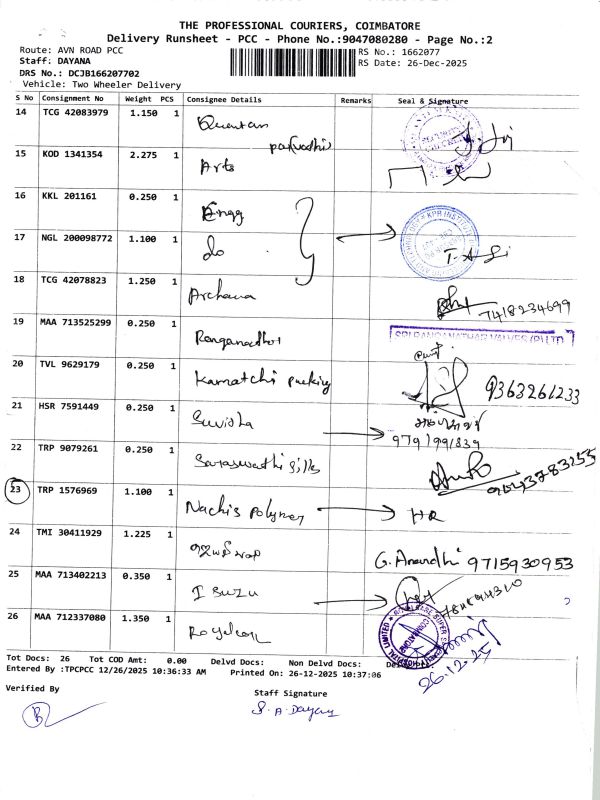 THE PROFESSIONAL COURIERS, COIMBATORE
Delivery Runsheet - PCC - Phone No.:9047080280 - Page No.:2
Route: AVN ROAD PCC
RS No.: 1662077
Staff: DAYANA
RS Date: 26-Dec-2025
DRS No.: DCJB166207702
Vehicle: Two Wheeler Delivery
S No Consignment No Weight PCS Consignee Details Remarks Seal & Signature
14 TCG 42083979 1.150 1 Quentan
parvadhi
15 KOD 1341354 2.275 1 Arts
16 KKL 201161 0.250 1 Engg
17 NGL 200098772 1.100 1 do
KPR INSTITUTE
18 TCG 42078823 1.250 1 Archana
7418234699
19 MAA 713525299 0.250 1 Ranganathar
SRI RANGANATHAR VALVES (P) LTD
20 TVL 9629179 0.250 1 Kamatchi packing
9363261233
21 HSR 7591449 0.250 1 Suvisha
9791991839
22 TRP 9079261 0.250 1 Saraswathi silks
23 TRP 1576969 1.100 1 Nachis polymer HR
24 TMI 30411929 1.225 1
G. Anandhi 9715930953
25 MAA 713402213 0.350 1 Isuzu
26 MAA 712337080 1.350 1 Royalcare
26.12.25
Tot Docs: 26 Tot COD Amt: 0.00 Delvd Docs: Non Delvd Docs:
Entered By :TPCPCC 12/26/2025 10:36:33 AM Printed On: 26-12-2025 10:37:06
Verified By
Staff Signature
S. A. Dayany